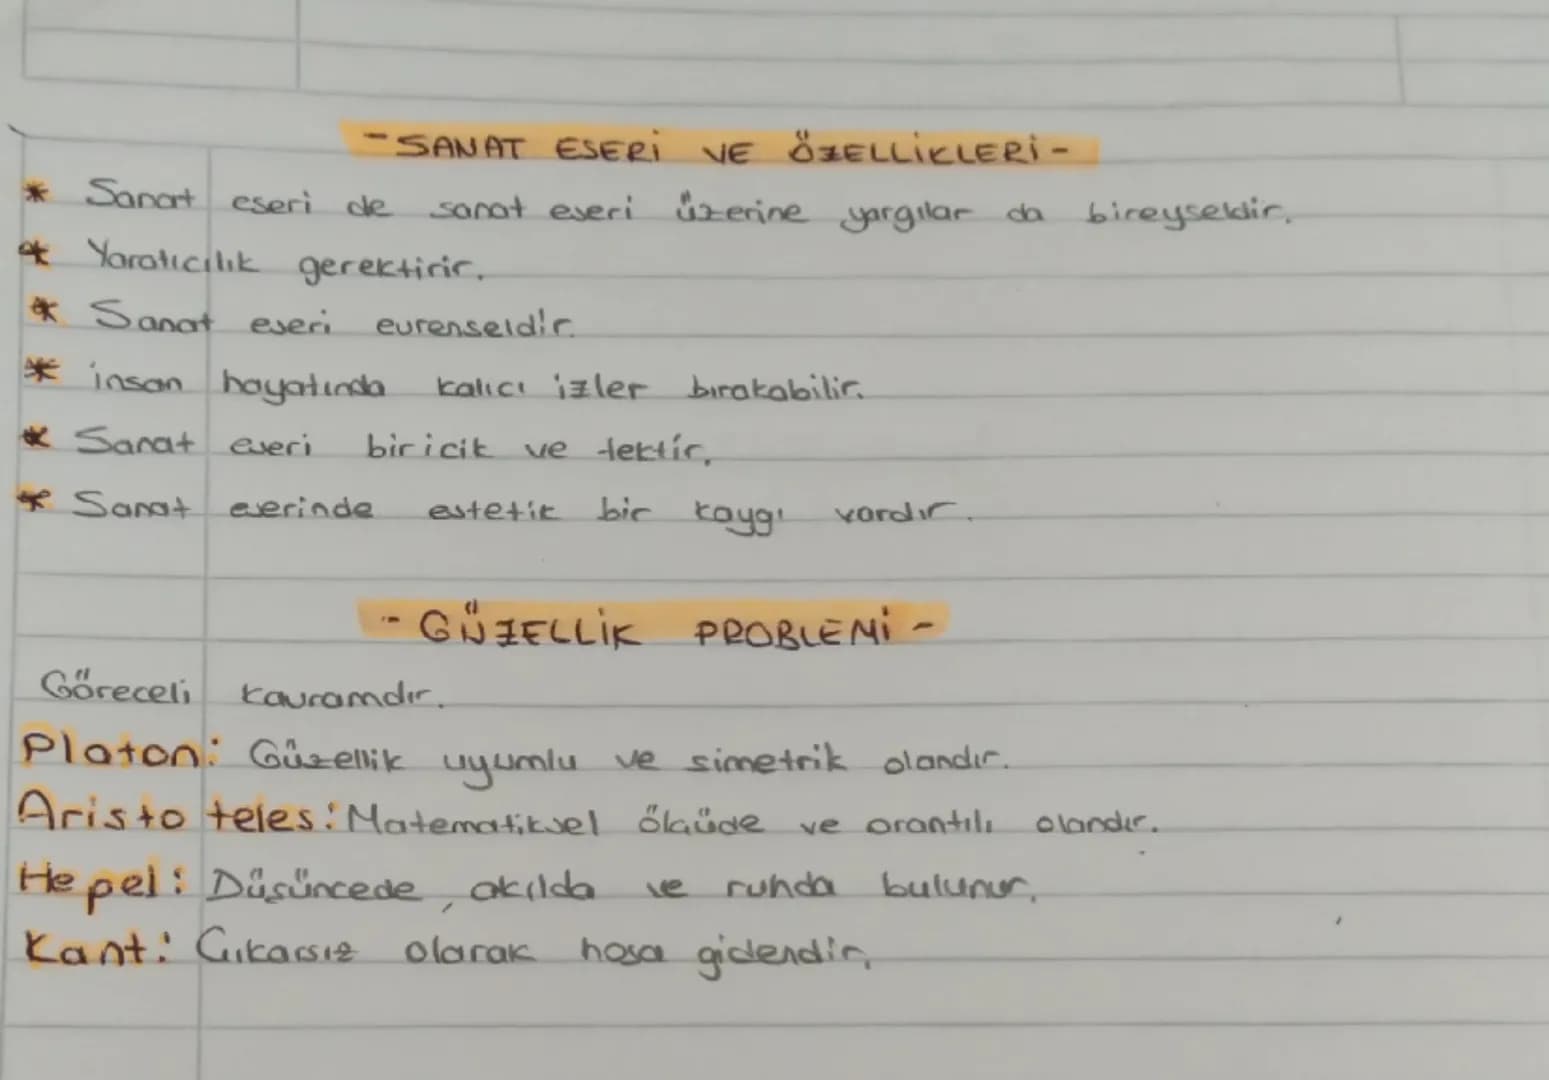 - SANAT ESERİ VE ÖZELLİKLERİ -
* Sanat eseri de sanat eseri üzerine yargılar da bireyseldir.
* Yaratıcılık gerektirir.
* Sanat eseri evrenseldir.
* insan hayatında kalıcı izler bırakabilir.
* Sanat eseri biricik ve tektir.
* Sanat eserinde estetik bir kaygı vardır.
- GÜZELLİK PROBLEMİ -
Göreceli kavramdır.
Platon: Güzellik uyumlu ve simetrik olandır.
Aristo teles: Matematiksel ölçüde ve orantılı olandır.
Hepel: Düşüncede, akılda ve ruhda bulunur.
Kant: Çıkarsız olarak hoşa gidendir.